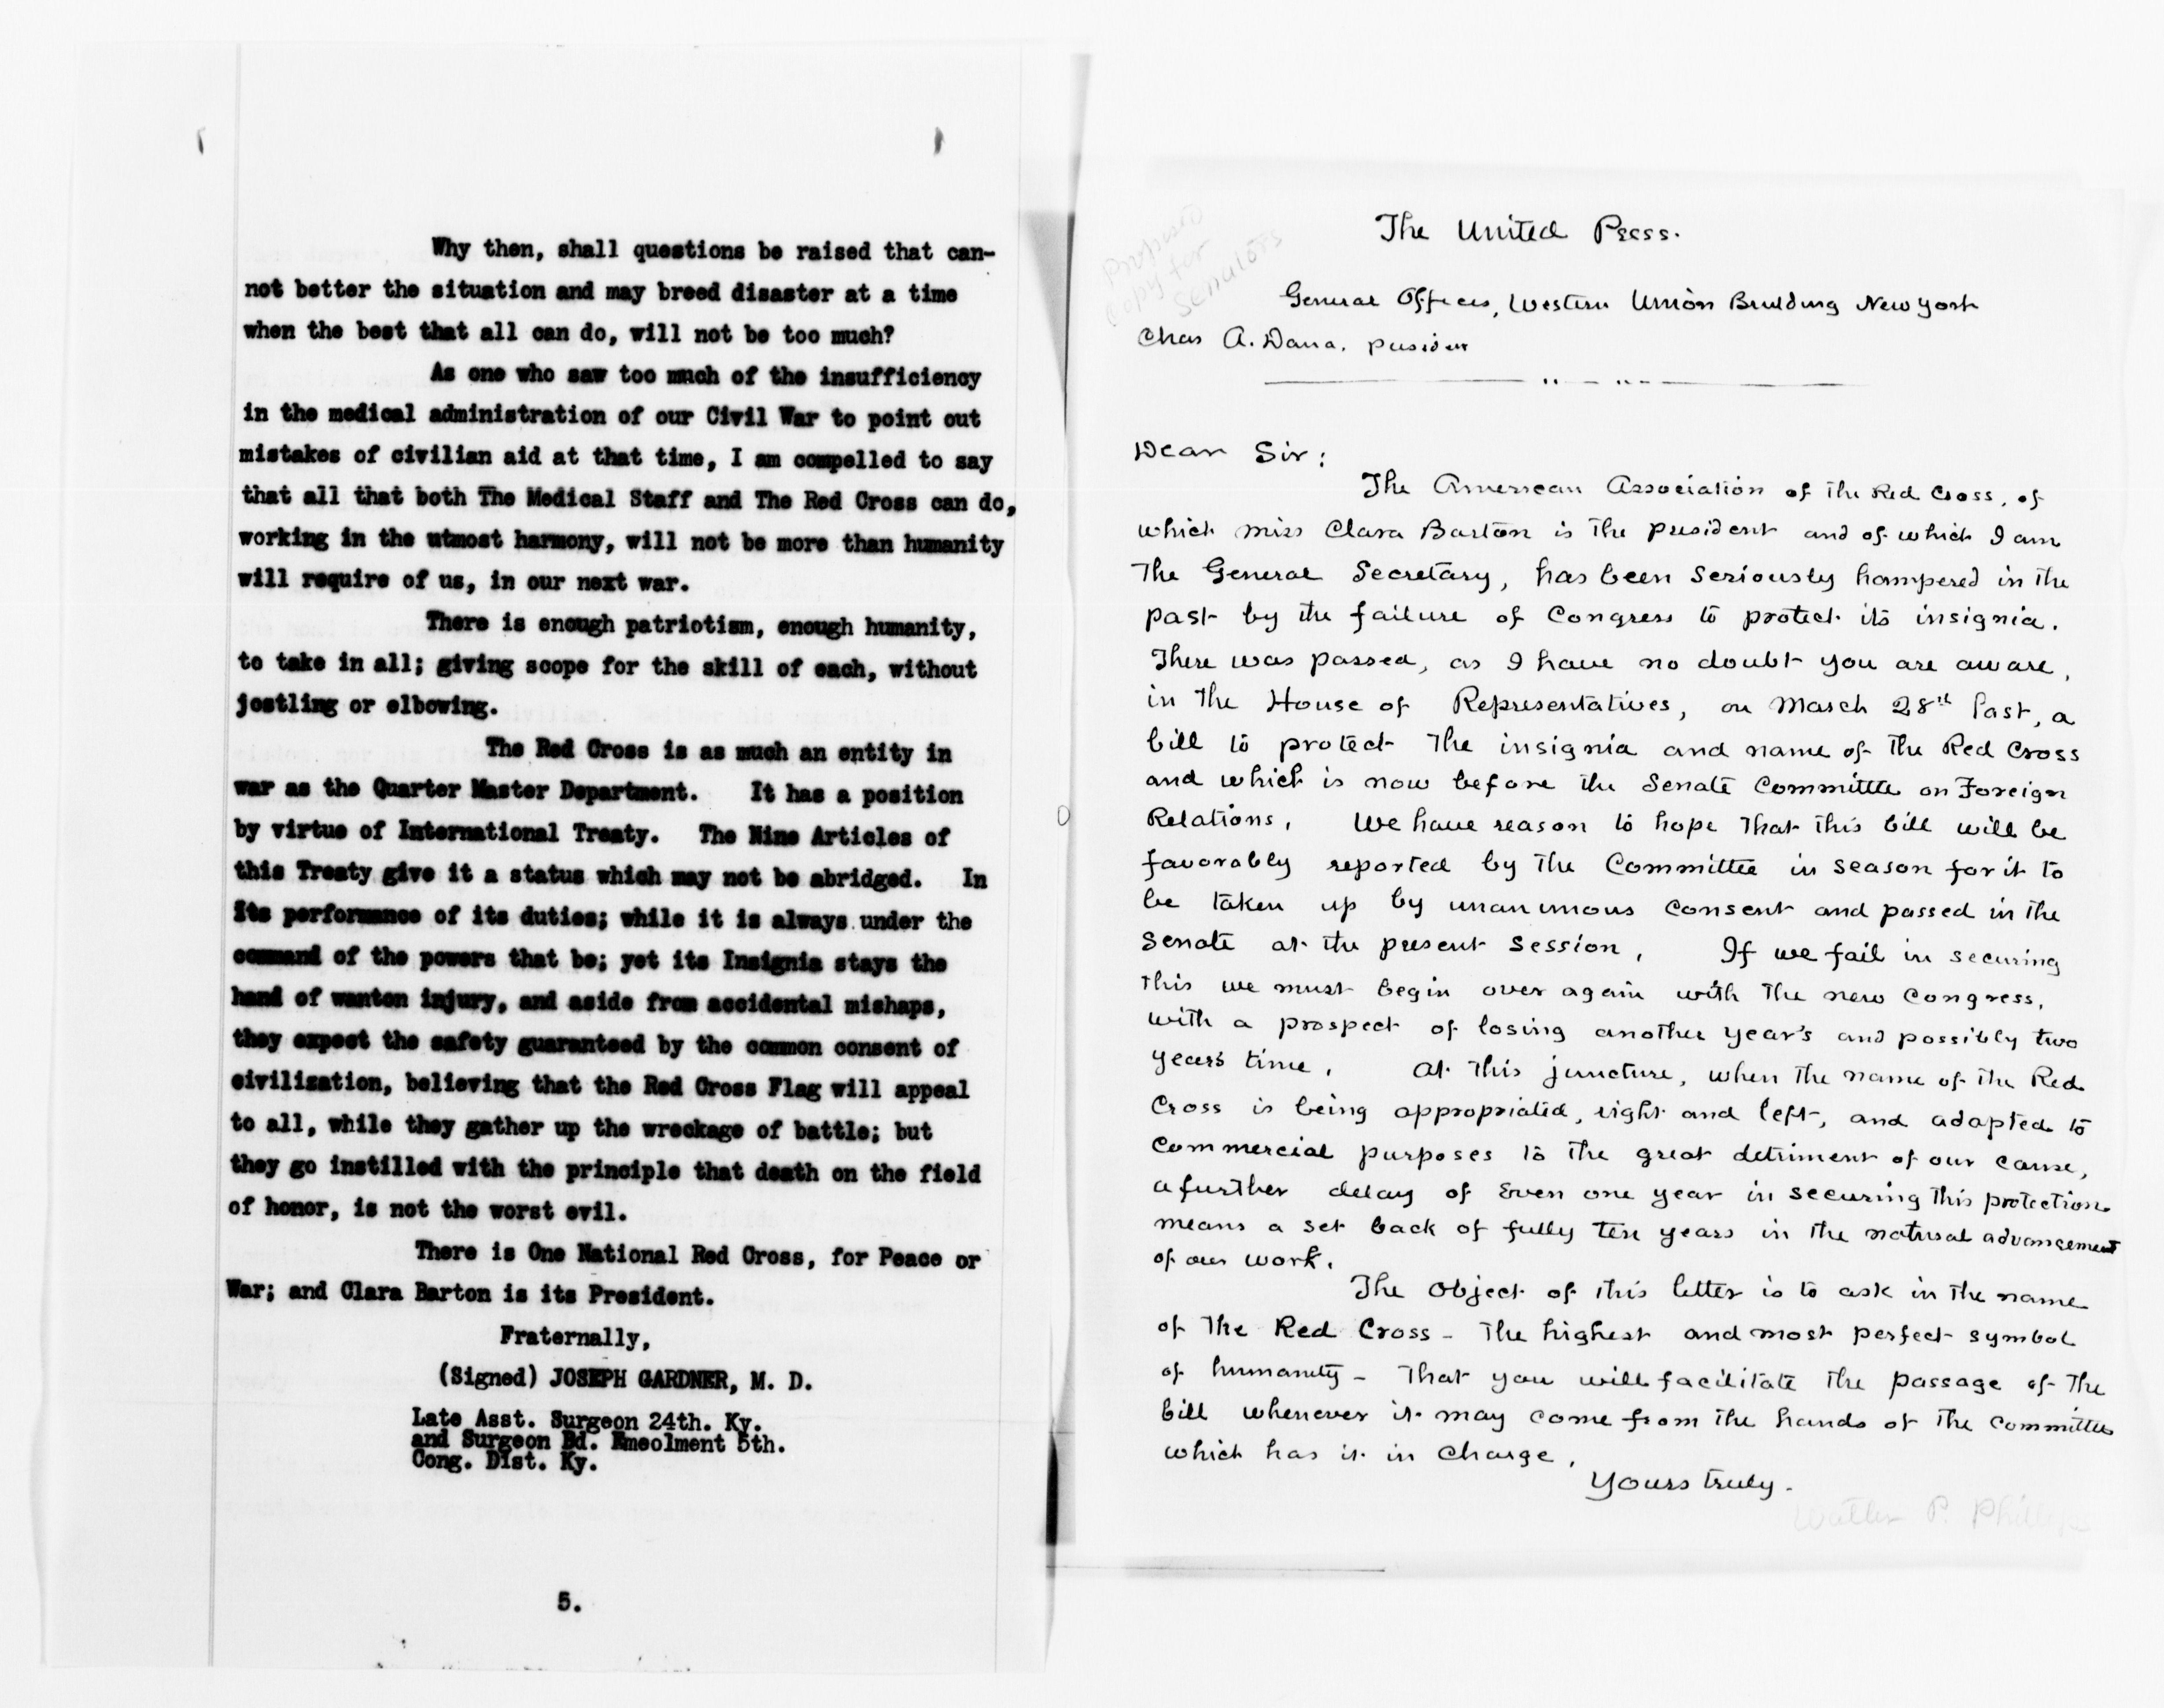 Why then, shall questions be raised that can-
not better the situation and may breed disaster at a time
when the best that all can do, will not be too much?
As one who saw too much of the insufficiency
in the medical administration of our Civil War to point out
mistakes of civilian aid at that time, I am compelled to say
that all that both The Medical Staff and The Red Cross can do,
working in the utmost harmony, will not be more than humanity
will require of us, in our next war.
There is enough patriotism, enough humanity,
to take in all; giving scope for the skill of each, without
jostling or elbowing.
The Red Cross is as much an entity in
war as the Quarter Master Department. It has a position
by virtue of International Treaty. The Nine Articles of
this Treaty give it a status which may not be abridged. In
its performance of its duties; while it is always under the
command of the powers that be; yet its Insignia stays the
hand of wanton injury, and aside from accidental mishaps,
they expect the safety guaranteed by the common consent of
civilization, believing that the Red Cross Flag will appeal
to all, while they gather up the wreckage of battle; but
they go instilled with the principle that death on the field
of honor, is not the worst evil.
There is One National Red Cross, for Peace or
War; and Clara Barton is its President.
Fraternally,
(Signed) JOSEPH GARDNER, M. D.
Late Asst. Surgeon 24th. Ky.
and Surgeon Bd. Emeolment 5th.
Cong. Dist. Ky.
5.
Proposed
copy for
Senators
The United Press.
General Offices, Western Union Building New York
Chas A. Dana. president
Dear Sir:
The American Association of the Red Cross, of
which miss Clara Barton is the president and of which I am
The General Secretary, has been seriously hampered in the
past by the failure of Congress to protect its insignia.
There was passed, as I have no doubt you are aware,
in the House of Representatives, on March 28th last, a
bill to protect the insignia and name of the Red Cross
and which is now before the Senate Committee on Foreign
Relations. We have reason to hope that this bill will be
favorably reported by the Committee in season for it to
be taken up by unanimous consent and passed in the
Senate at the present session. If we fail in securing
this we must begin over again with the new Congress,
with a prospect of losing another year's and possibly two
years time. At this juncture, when the name of the Red
Cross is being appropriated, right and left, and adapted to
commercial purposes to the great detriment of our cause,
a further delay of even one year in securing this protection
means a set back of fully ten years in the natural advancement
of our work.
The object of this letter is to ask in the name
of the Red Cross - the highest and most perfect symbol
of humanity - that you will facilitate the passage of the
bill whenever it may come from the hands of the committee
which has it in charge.
Yours truly.
Walter P. Phillips